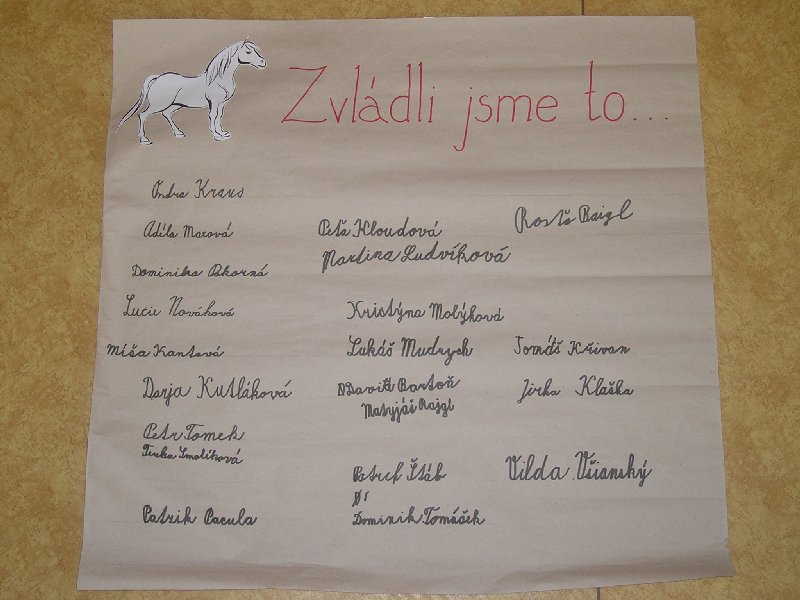 Zvládli jsme to...
Ondra Kraus
Adéla Maxová
Dominika Pokorná
Lucie Nováková
Míša Kantová
Darja Kutláková
Petr Tomek
Terka Smolíková
Patrik Pacula
Peťa Kloudová
Martina Ludvíková
Kristýna Malýková
Lukáš Mudrych
David Bartoň
Matyjáš Rajgl
Štáb
Dominik Tomášek
Rosťa Raigl
Tomáš Křivan
Jirka Klaška
Vilda Všianský